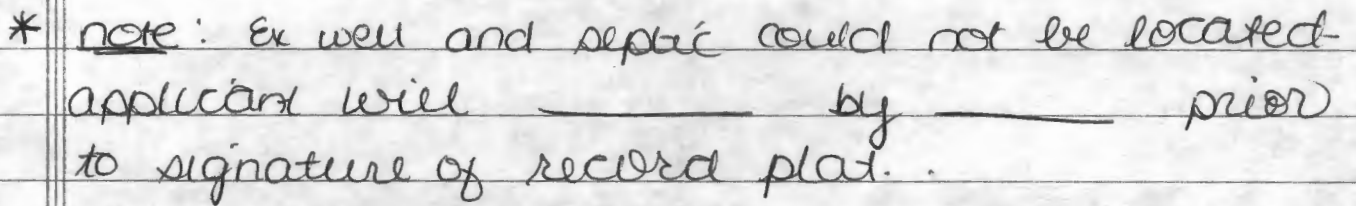 * note: Ex well and septic could not be located-
applicant will ______ by ______ prior
to signature of record plat..